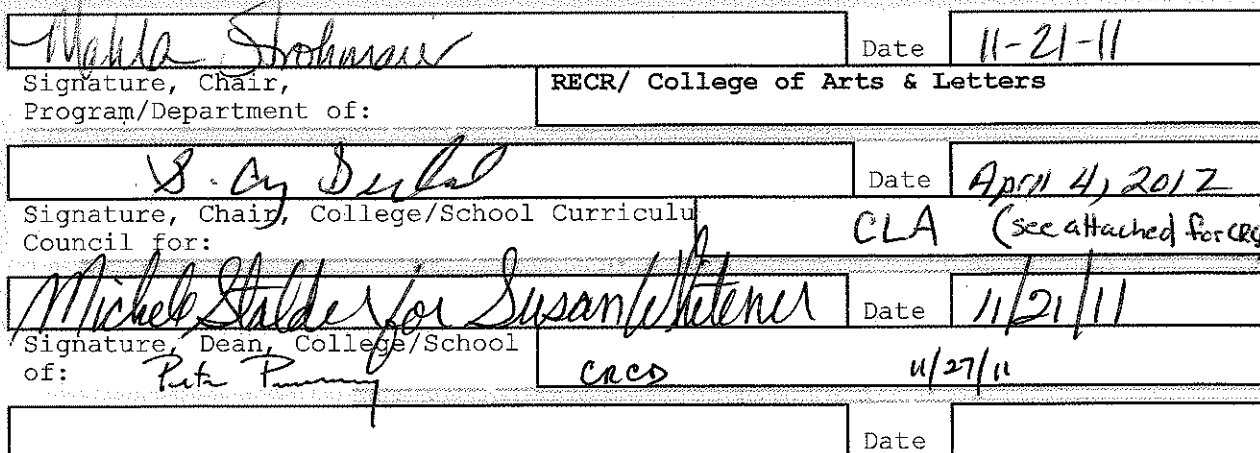 Mahla Strohmaier Date 11-21-11
Signature, Chair, RECR/ College of Arts & Letters
Program/Department of:
S. Date April 4, 2012
Signature, Chair, College/School Curriculu
Council for: CLA (see attached for CRCD
Michele Stalder for Susan Whitener Date 11/21/11
Signature, Dean, College/School
of: CRCD 11/27/11
Date